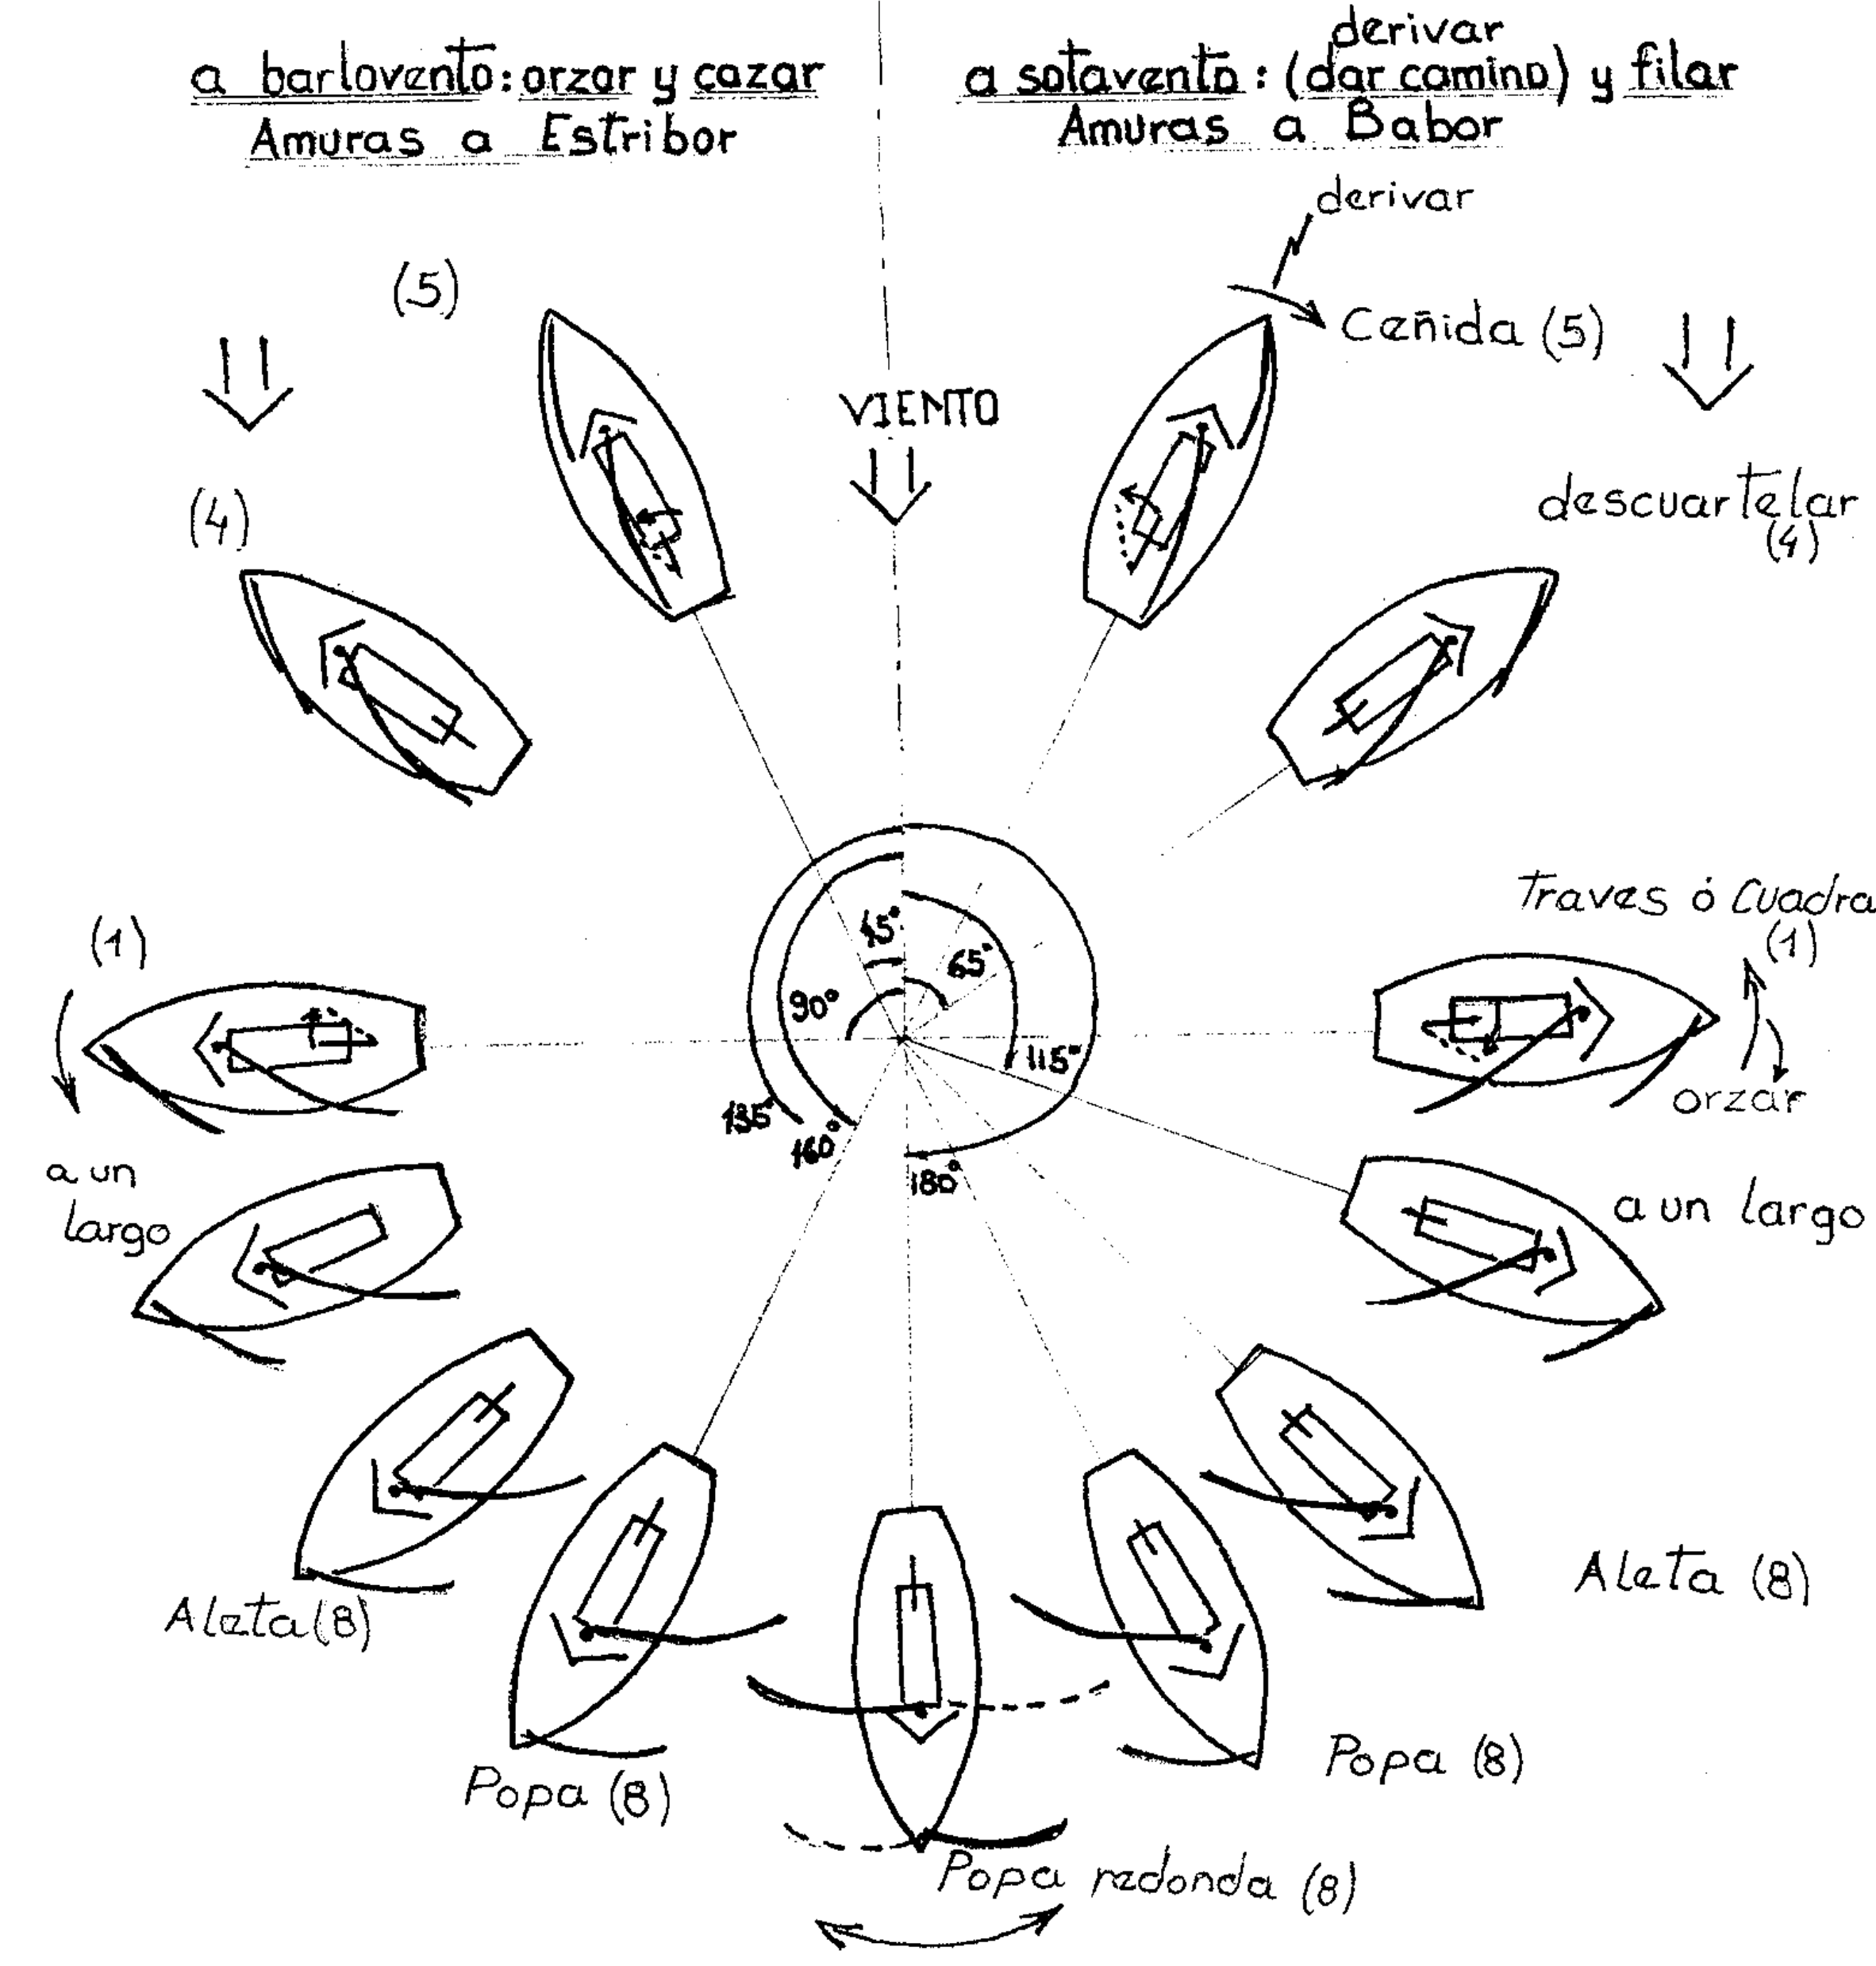 a barlovento: orzar y cazar
Amuras a Estribor
derivar
a sotavento: (dar camino) y filar
Amuras a Babor
derivar
(5)
Ceñida (5)
VIENTO
(4)
descuartelar
(4)
(1)
Traves ó Cuadra
(1)
orzar
45°
65°
90°
115°
135°
160°
180°
a un
largo
a un largo
Aleta (8)
Aleta (8)
Popa (8)
Popa (8)
Popa redonda (8)